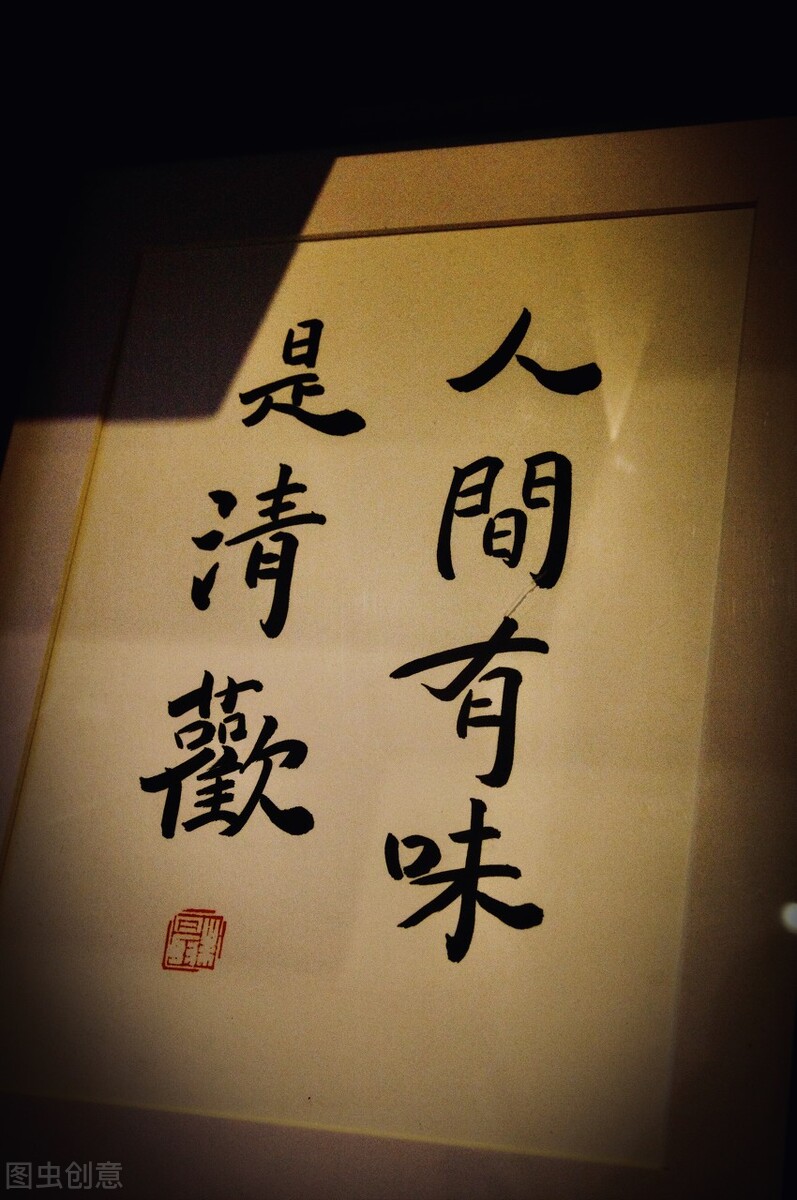 人間有味
是清歡
图虫创意